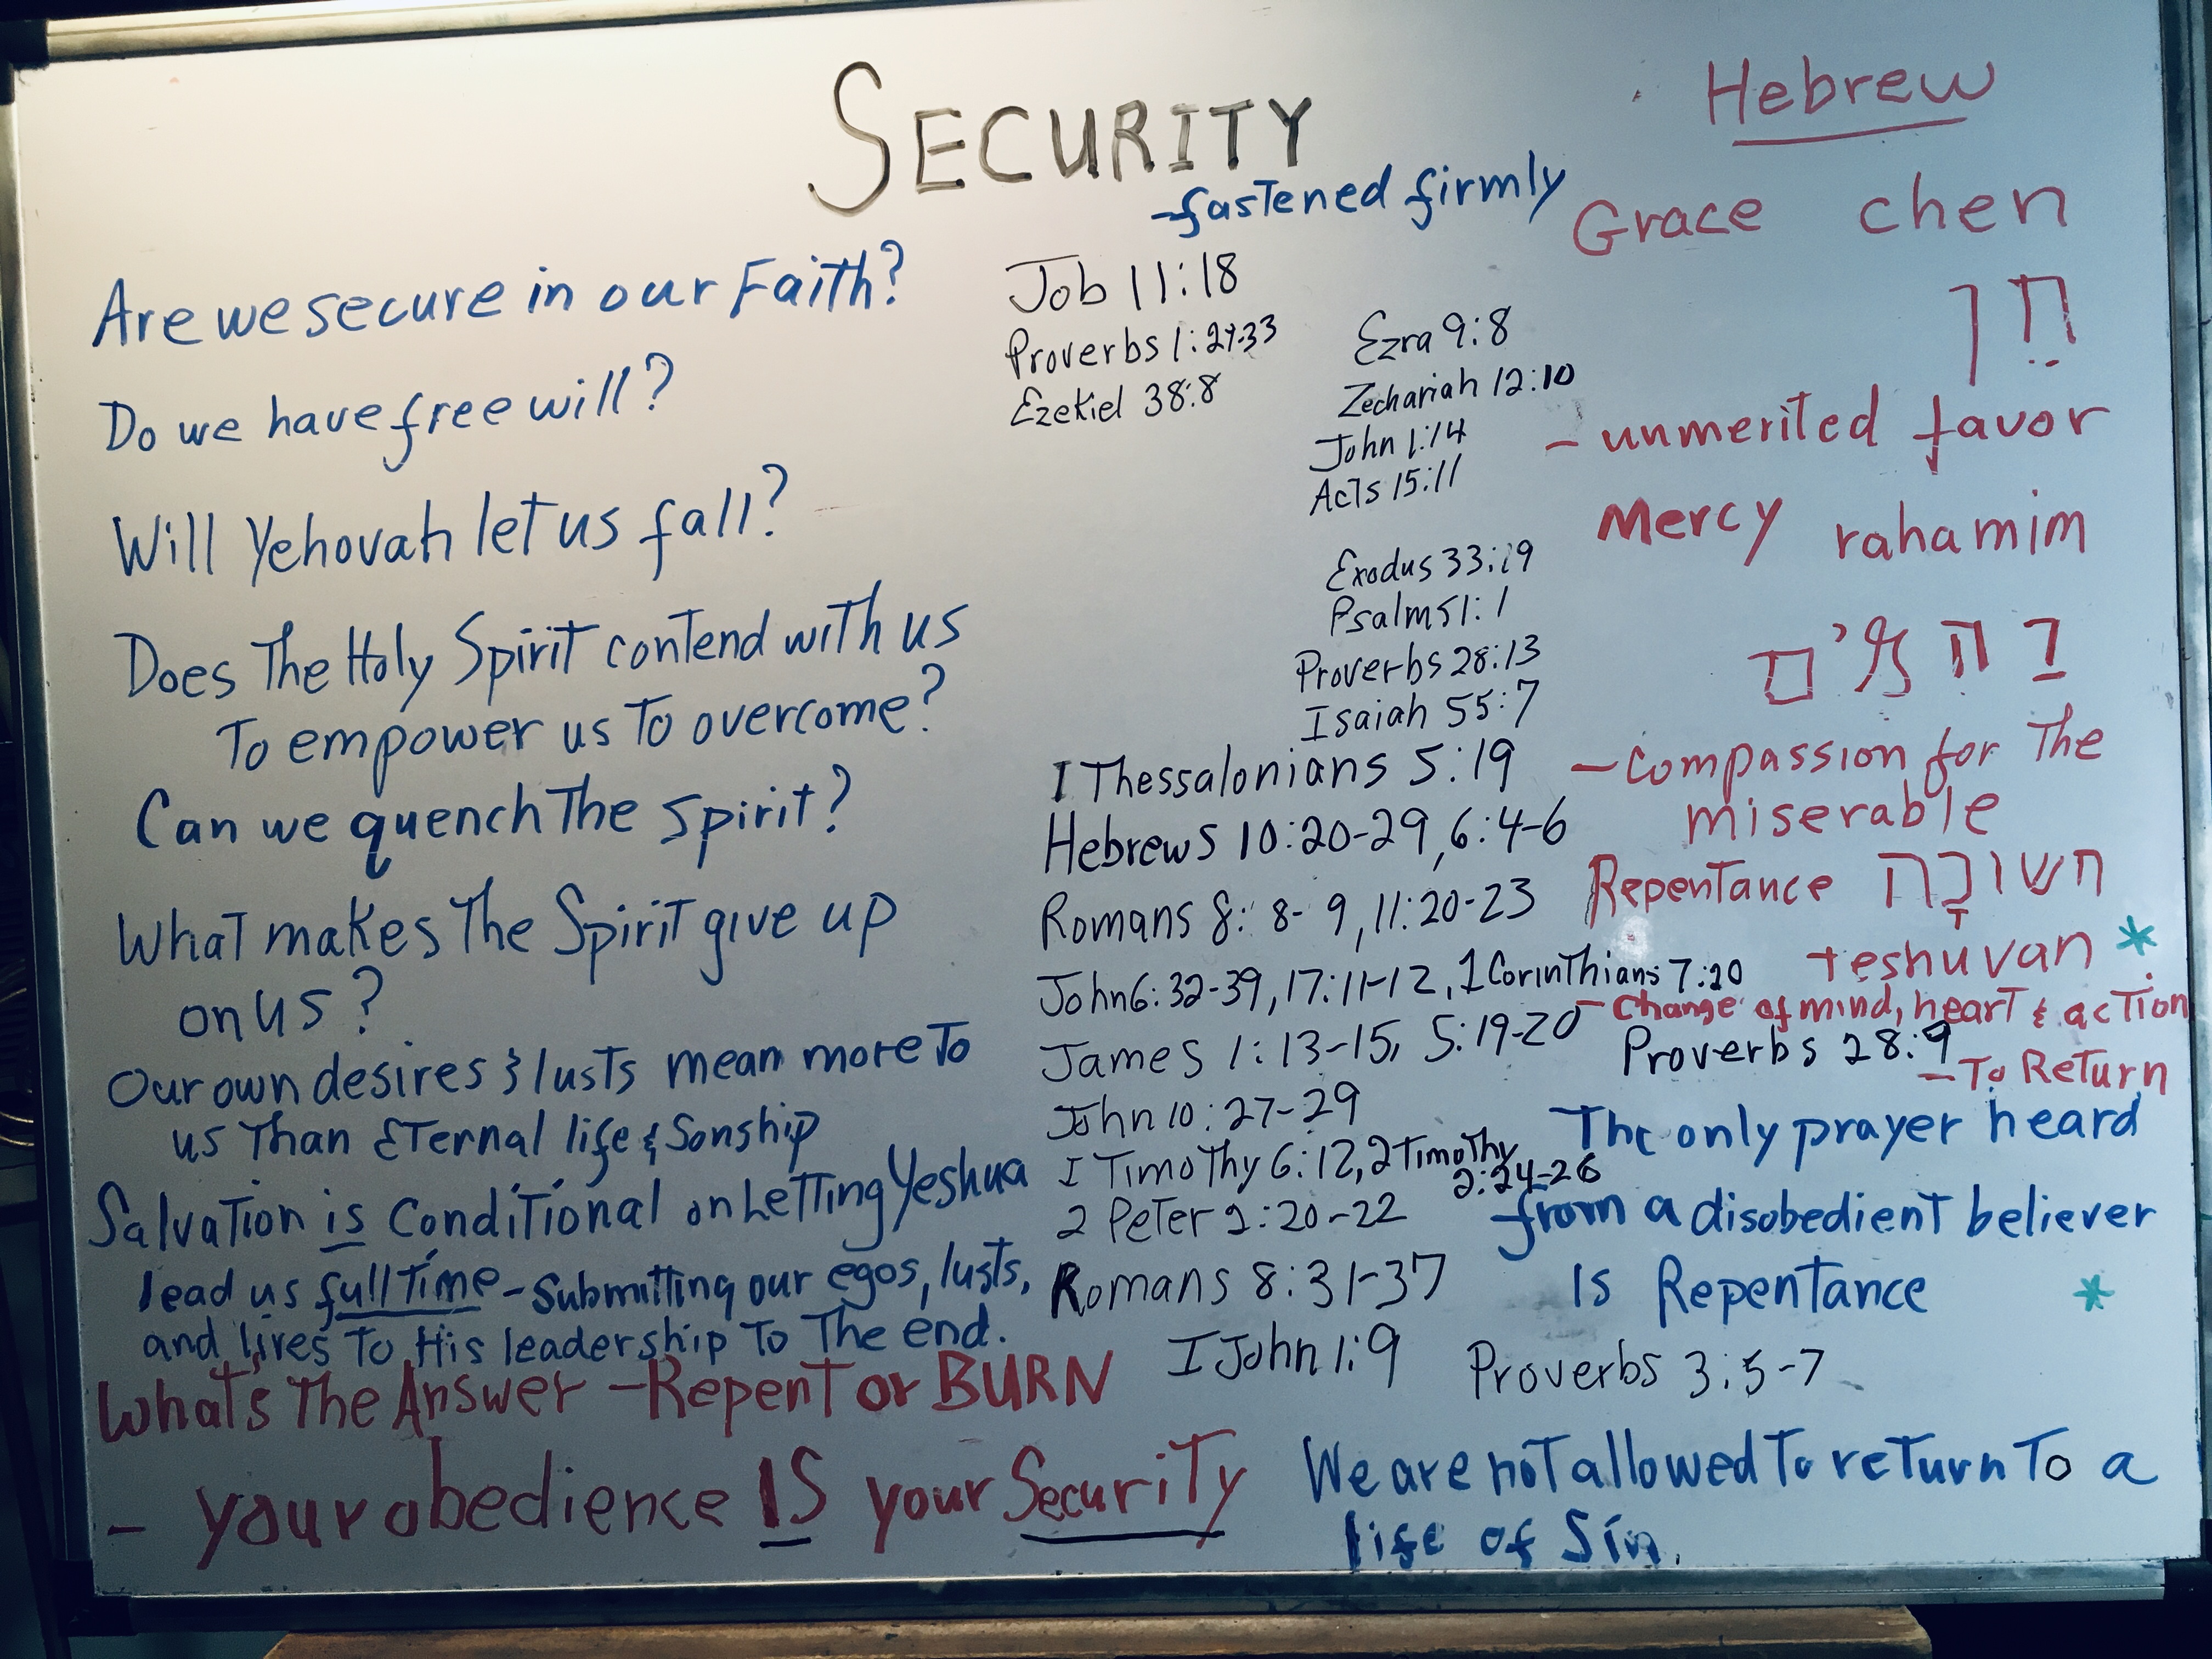 SECURITY
-fastened firmly
Are we secure in our Faith?
Do we have free will?
Will Yehovah let us fall?
Does The Holy Spirit contend with us
To empower us To overcome?
Can we quench The Spirit?
What makes The Spirit give up
on us?
Our own desires & lusts mean more To
us Than Eternal life & Sonship
Salvation is Conditional on Letting Yeshua
lead us full Time - Submitting our egos, lusts,
and lives To His leadership To The end.
What's The Answer - Repent or BURN
- your obedience IS your Security
Job 11:18
Proverbs 1:24-33
Ezekiel 38:8
Ezra 9:8
Zechariah 12:10
John 1:14
Acts 15:11
Exodus 33:19
Psalm 51:1
Proverbs 28:13
Isaiah 55:7
I Thessalonians 5:19
Hebrews 10:20-29, 6:4-6
Romans 8:8-9, 11:20-23
John 6:32-39, 17:11-12, 1 Corinthians 7:20
James 1:13-15, 5:19-20
John 10:27-29
I Timothy 6:12, 2 Timothy
2:24-26
2 Peter 2:20-22
Romans 8:31-37
I John 1:9
Proverbs 3:5-7
Hebrew
Grace chen
חן
- unmerited favor
Mercy rahamim
- Compassion for The
miserable
Repentance תשובָה
teshuvah *
- Change of mind, heart & action
Proverbs 28:9
- To Return
The only prayer heard
from a disobedient believer
Is Repentance *
We are not allowed To return To a
life of Sin.